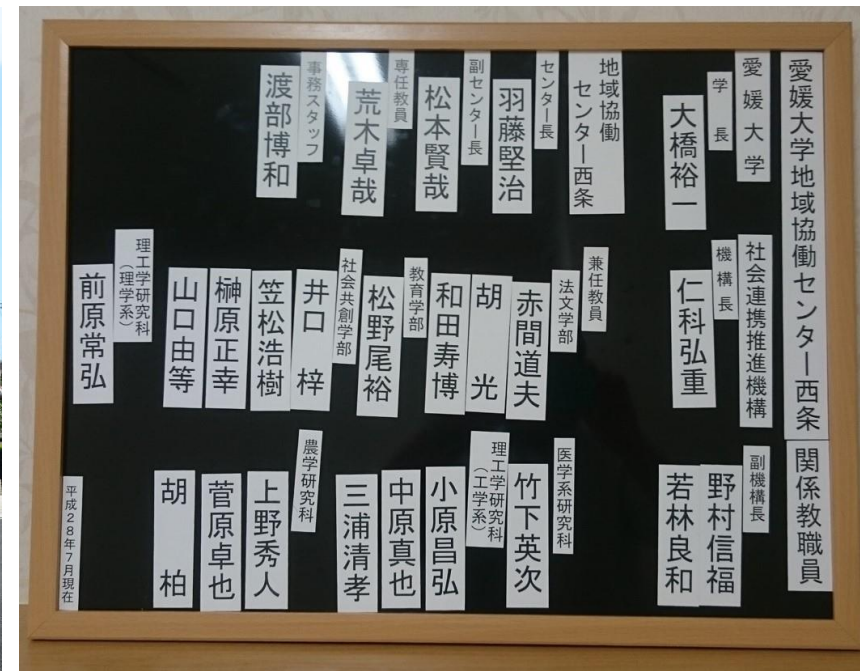 愛媛大学地域協働センター西条 関係教職員
愛媛大学
学長
大橋裕一
社会連携推進機構
機構長
仁科弘重
副機構長
野村信福
若林良和
地域協働
センター西条
センター長
羽藤堅治
副センター長
松本賢哉
専任教員
荒木卓哉
事務スタッフ
渡部博和
兼任教員
法文学部
赤間道夫
胡光
和田寿博
教育学部
松野尾裕
社会共創学部
井口梓
笠松浩樹
榊原正幸
山口由等
理工学研究科
(理学系)
前原常弘
医学系研究科
竹下英次
理工学研究科
(工学系)
小原昌弘
中原真也
三浦清孝
農学研究科
上野秀人
菅原卓也
胡柏
平成28年7月現在